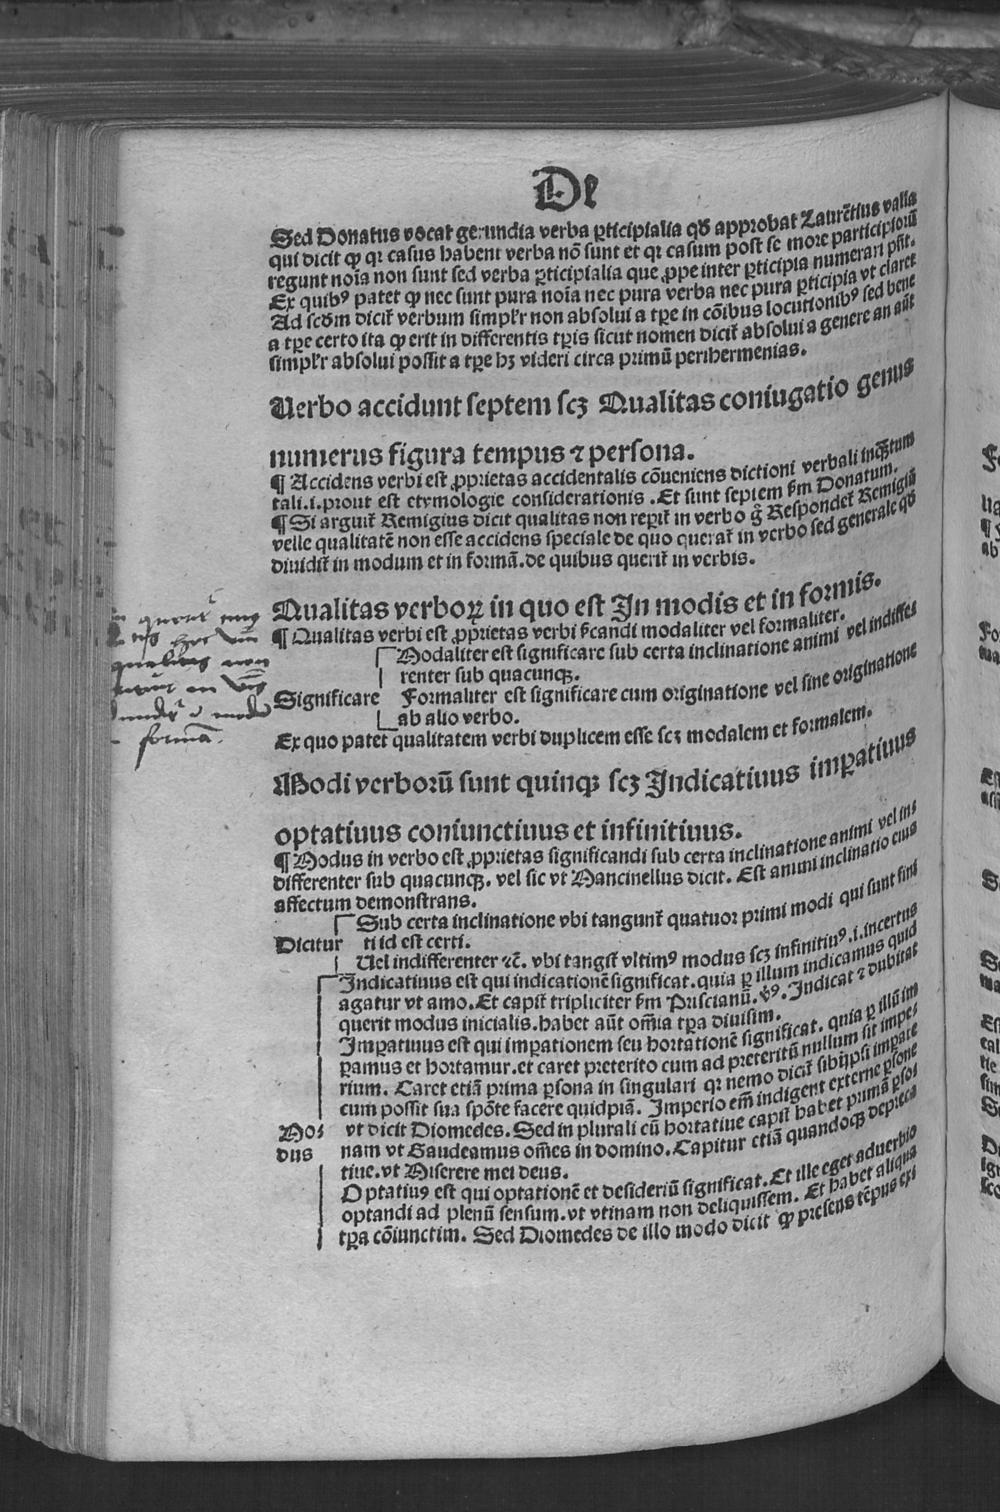 De
Sed Donatus vocat gerundia verba ꝑticipialia qđ approbat Laurētius valla
qui dicit ꝙ qꝛ casus habent verba nō sunt et qꝛ casum post se more participiorū
regunt noīa non sunt sed verba ꝑticipialia que ꝓpe inter ꝑticipia numerari pn̄t.
Ex quibꝰ patet ꝙ nec sunt pura noīa nec pura verba nec pura ꝑticipia vt claret
Ad scđm dicit̄ verbum simpl̄r non absolui a tꝑe in cōibus locutionibꝰ sed bene
a tꝑe certo ita ꝙ erit in differentis tꝑis sicut nomen dicit̄ absolui a genere an aūt
simpl̄r absolui possit a tꝑe hꝫ videri circa primū perihermenias.
Uerbo accidunt septem scꝫ Qualitas coniugatio genus
numerus figura tempus ⁊ persona.
¶ Accidens verbi est ꝓprietas accidentalis cōueniens dictioni verbali inqꝫtum
tali.i.prout est etymologie considerationis. Et sunt septem ẜm Donatum.
¶ Si arguit̄ Remigius dicit qualitas non reperit̄ in verbo g̊ Respondet̄ Remigiū
velle qualitatē non esse accidens speciale de quo querat̄ in verbo sed generale qđ
diuidit̄ in modum et in formā.de quibus querit̄ in verbis.
Qualitas verboꝝ in quo est In modis et in formis.
¶ Qualitas verbi est ꝓprietas verbi ẜcandi modaliter vel formaliter.
Modaliter est significare sub certa inclinatione animi vel indiffe⸗
renter sub quacunqꝫ.
Significare Formaliter est significare cum originatione vel sine originatione
ab alio verbo.
Ex quo patet qualitatem verbi duplicem esse scꝫ modalem et formalem.
Modi verborū sunt quinqꝫ scꝫ Indicatiuus imꝑatiuus
optatiuus coniunctiuus et infinitiuus.
¶ Modus in verbo est ꝓprietas significandi sub certa inclinatione animi vel in⸗
differenter sub quacunqꝫ. vel sic vt Mancinellus dicit. Est animi inclinatio eius
affectum demonstrans.
Sub certa inclinatione vbi tangunt̄ quatuor primi modi qui sunt fini
Dicitur ti id est certi.
Uel indifferenter ⁊c̄. vbi tangit̄ vltimꝰ modus scꝫ infinitiuꝰ.i.incertus
Indicatiuus est qui indicationē significat. quia ꝑ illum indicamus quid
agatur vt amo. Et capit̄ tripliciter ẜm Priscianū. vꝰ. Indicat ⁊ dubitat
querit modus inicialis. habet aūt om̄ia tꝑa diuisim.
Imꝑatiuus est qui imꝑationem seu hortationē significat. quia ꝑ illū im
ꝑamus et hortamur. et caret preterito cum ad preteritū nullum sit impe⸗
rium. Caret etiā prima ꝑsona in singulari qꝛ nemo dicit̄ sibiipsi imꝑare
cum possit sua spōte facere quidpiā. Imperio em̄ indigent externe ꝑsone
Mo⸗ vt dicit Diomedes. Sed in plurali cū hortatiue capit̄ habet primā ꝑso⸗
dus nam vt Gaudeamus om̄es in domino. Capitur etiā quandoqꝫ depreca
tiue. vt Miserere mei deus.
Optatiuꝰ est qui optationē et desideriū significat. Et ille eget aduerbio
optandi ad plenū sensum. vt vtinam non deliquissem. Et habet aliqua
tꝑa cōiunctim. Sed Diomedes de illo modo dicit ꝙ presens tēpus exi